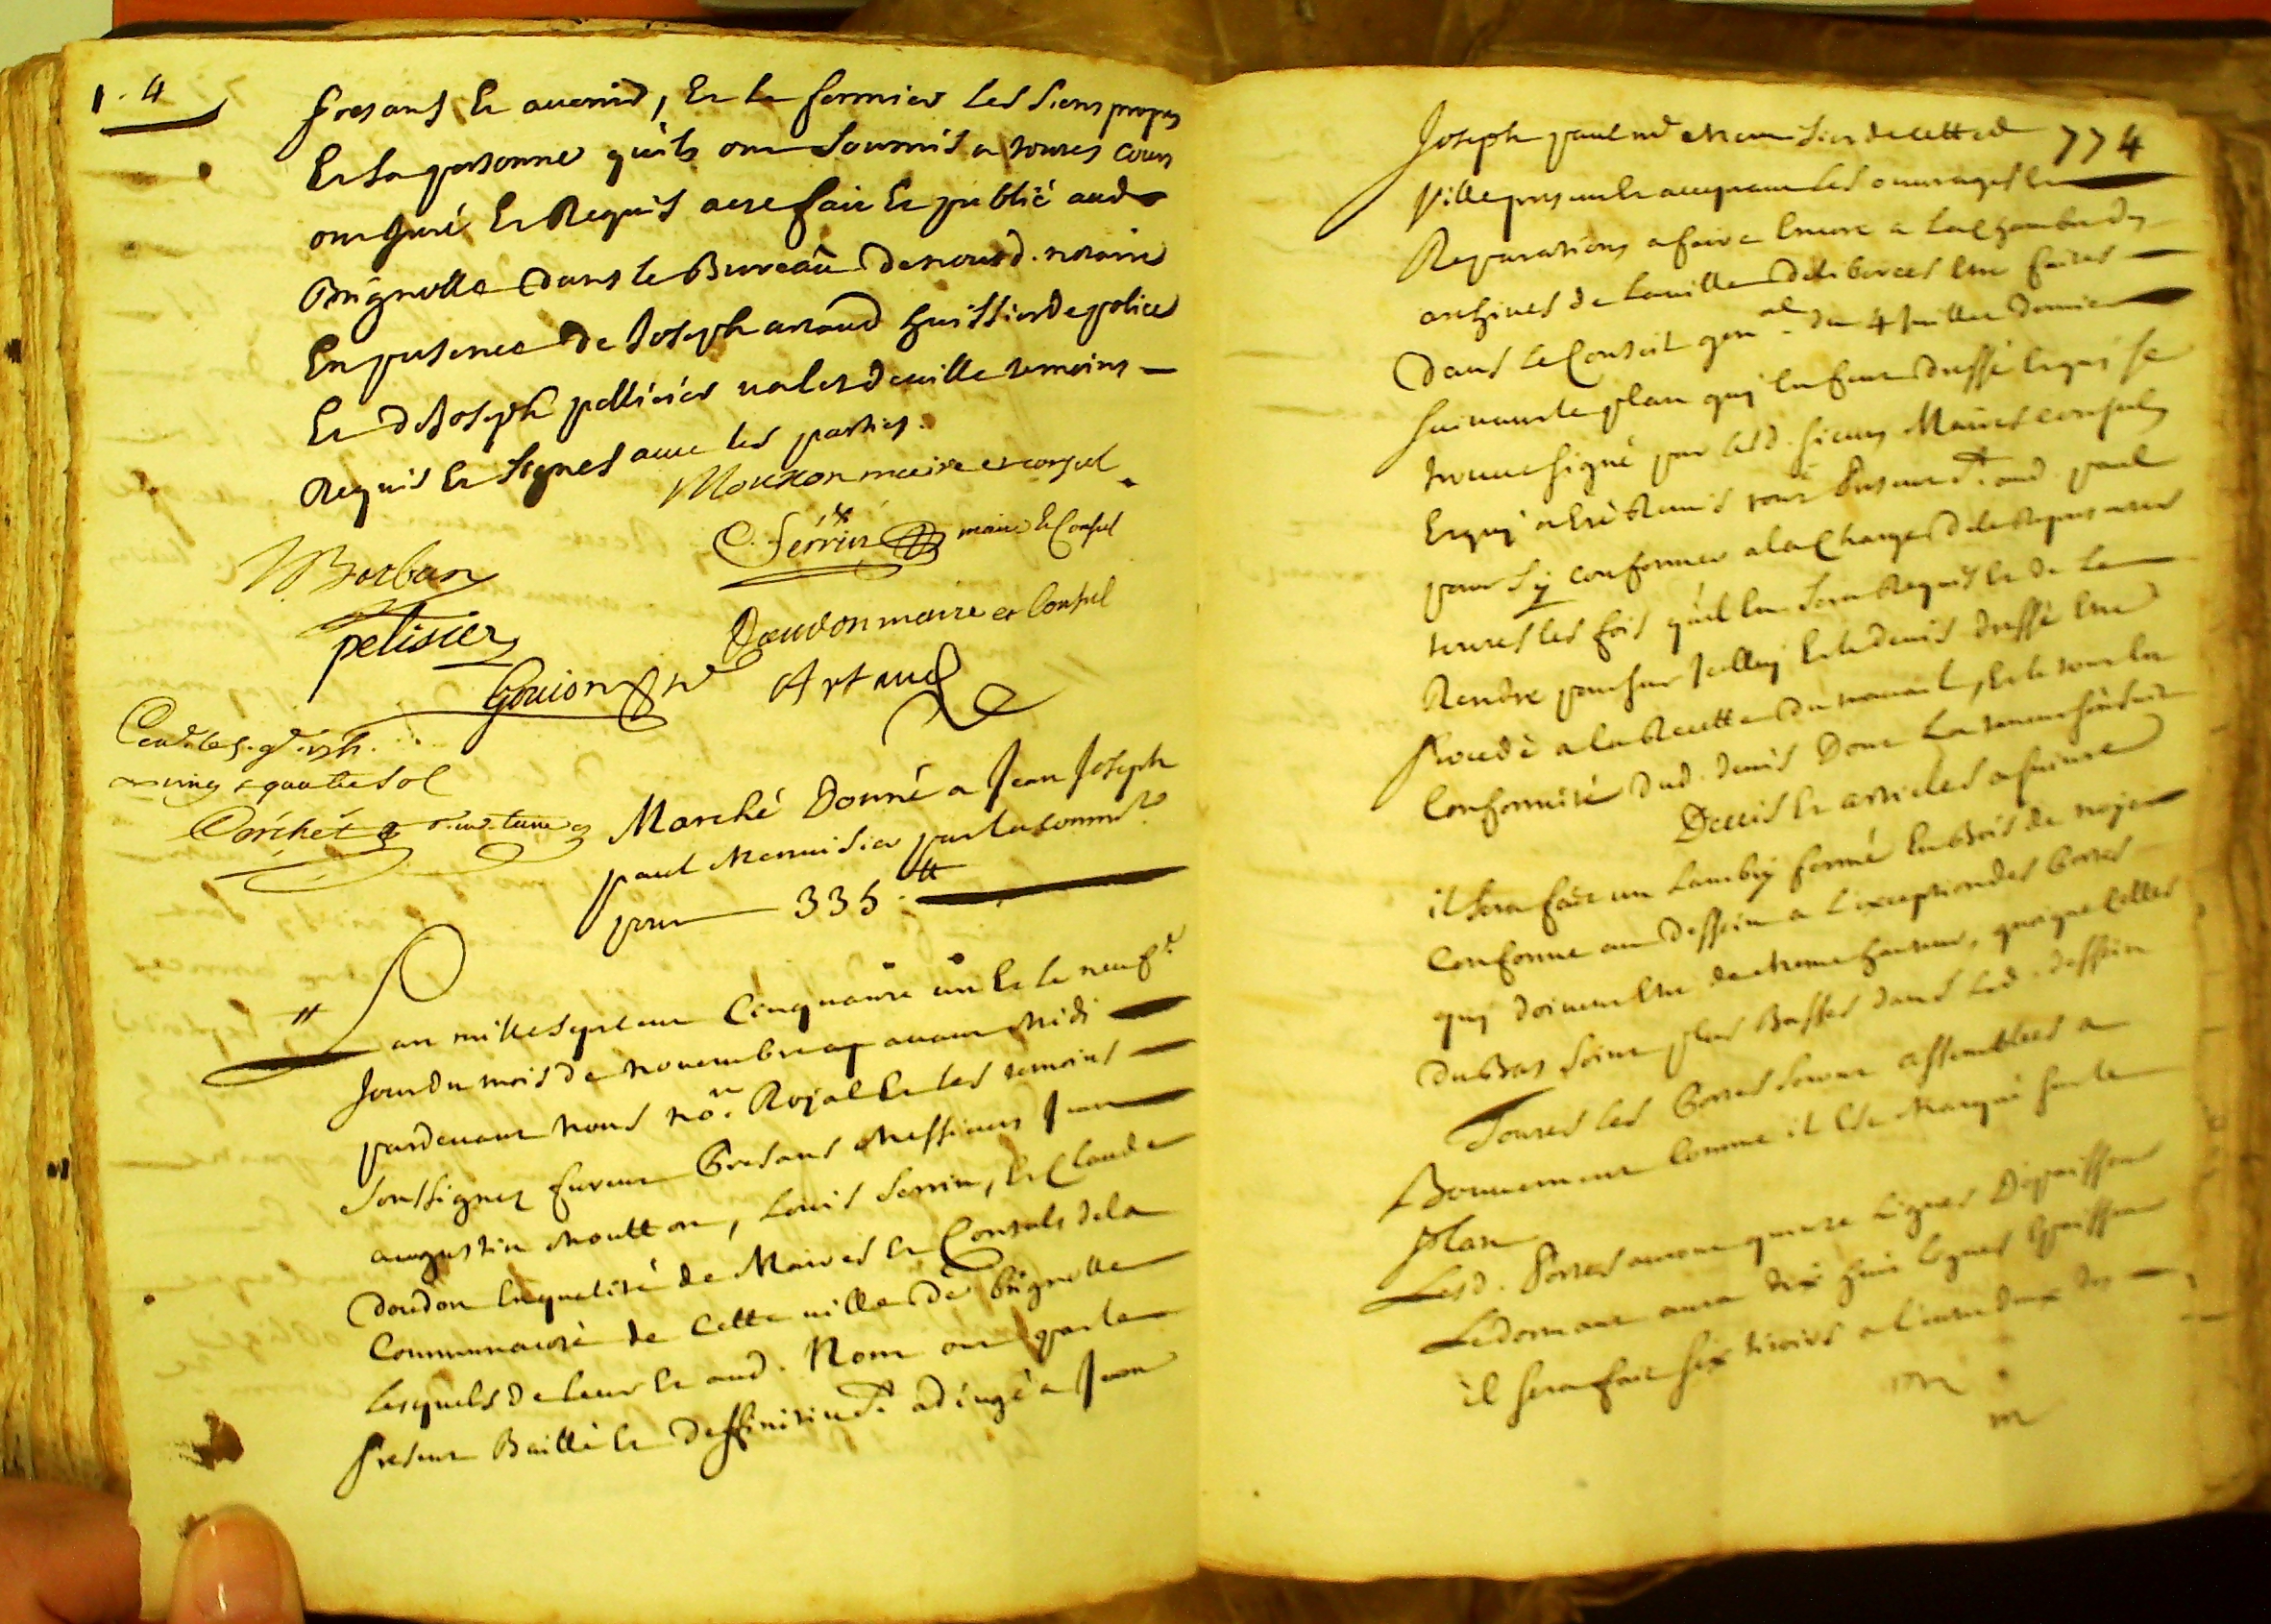 1. 4
presans et avenir, et le fermier les siens propres
et sa personne qu'ils ont soumis a toutes cours
ont juré et Requis acte fait et publié aud
Brignolle dans le Bureau de nousd. notaire
en presence de Joseph artaud huissier de police
et de Joseph pellisier valet de ville temoins
Requis et signes avec les parties.
Moutton maire et consul
C. Serrin maire et Consul
Borban
pelisier
Daudon maire et Consul
Gouion nre
Artaud
Con.lé
vingt quatre sol
Marché Donné a Jean Joseph
paul Menuisier par la comm.té
pour 335 ₶
L'an mille sept cent Cinquante un et le neuf.e
Jour du mois de novembre avant Midi
pardevant nous no.re Royal et les temoins
soussignez furent presans Messieurs Jean
augustin Moutton, Louis Serrin, et Claude
doudon en qualité de Maires et Consuls de la
Communauté de Cette ville de Brignolle
lesquels de leur gré aud. Nom ont par le
present Baillé et deffinitivem.t adjugé a Jean
774
Joseph paul m.d Menuisier de cetted
ville present et acceptant les ouvrages et
Reparations a faire encore a la chambre des
archives de la ville deliberées être faites
dans le Conseil gen.al du 4 Juillet dernier
suivant le plan quy en feut dressé lequel se
trouve signé par lesd. sieurs Maires consuls
et quy a esté Remis tout presentem.t aud. paul
pour s'y conformer a la charge de le Representer
toutes les fois qu'il en sera Requis et de le
Rendre pour sur Jcelluy et le devis dressé etre
procedé a la Recette du travail, et le tout en
Conformité dud. devis dont la teneur s'ensuit
Devis et articles a suivre
il sera fait un Lambry formé en Bois de noyer
conforme au dessein a l'exception des Portes
quy doivent être de même hauteur, quoique celles
du Bas soint plus Basses dans led. dessein
Toutes les Portes seront assemblées a
Bouvement comme il est Marqué sur le
plan
Lesd. Portes auront quinze Lignes Depaisseur
Le dormant aura dix huit Lignes Epaisseur
il sera fait six tiroirs a l'un deux des